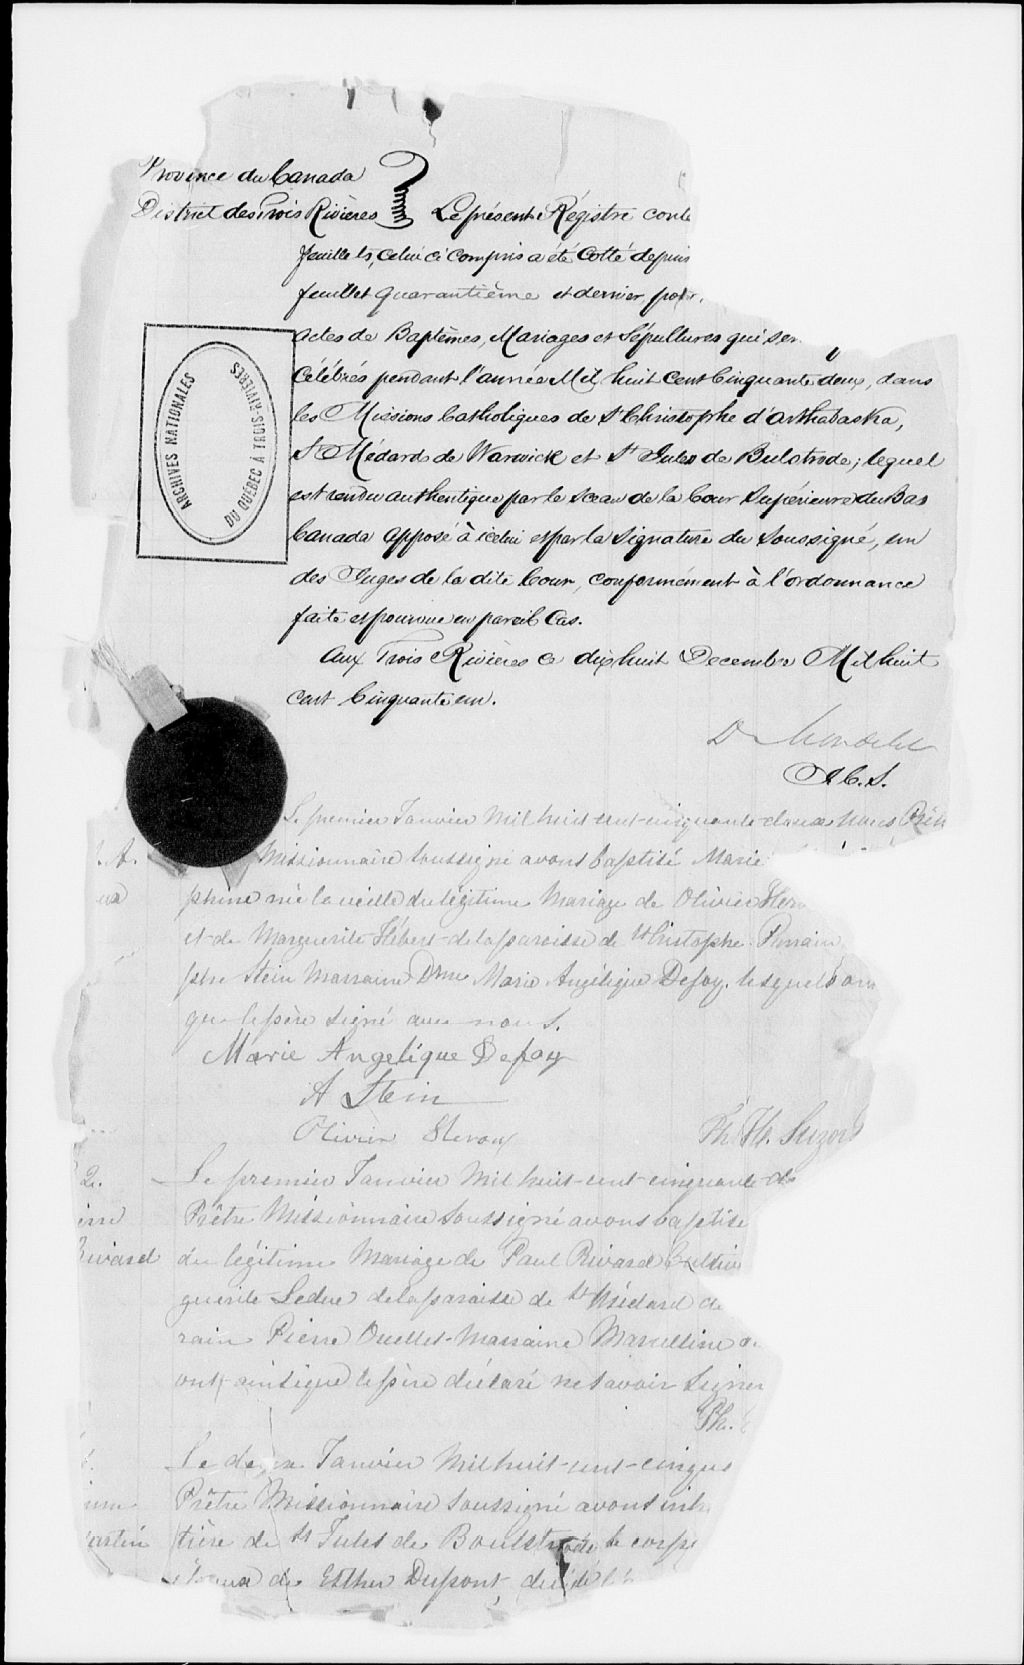 Province du Canada
District des Trois Rivières
Le présent Régistre cont
feuillets, celui ci compris a été Cotté depuis
feuillet quarantième et dernier, pour
actes de Baptêmes, Mariages et Sépultures qui ser
Célébrés pendant l'année Mil huit Cent Cinquante deux, dans
les Missions Catholiques de St Christophe d'Arthabaska,
St Médard de Warwick et St Jules de Bulstrode; lequel
est rendu authentique par le Sceau de la Cour Supérieure du Bas
Canada apposé à icelui et par la Signature du Soussigné, un
des Juges de la dite Cour, conformément à l'ordonnance
faite et pourvue en pareil Cas.
Aux Trois Rivières ce dix huit Decembre Mil huit
cent Cinquante un.
ARCHIVES NATIONALES
DU QUÉBEC À TROIS-RIVIÈRES
D Mondelet
J.C.S.
Le premier Janvier Mil huit-cent-cinquante-deux nous Prêt
Missionnaire soussigné avons baptisé Marie
phine née la veille du légitime Mariage de Olivier
et de Marguerite Hébert de la paroisse de St Christophe. Parrain
phe Stein Marraine Dme Marie Angélique Defoy. lesquels on
que le père signé avec nous.
Marie Angelique Defoy
A Stein
Olivier
Ph. H. Suzor
2.
Le premier Janvier Mil huit-cent-cinquante-d
Prêtre Missionnaire Soussigné avons baptisé
Rivard
du légitime Mariage de Paul Rivard Cultiv
guerite Leduc de la paroisse de St Médard de
rain Pierre Ouellet Marraine Marcelline
ont ainsi que le père déclaré ne savoir Signer
Ph.
Le deux Janvier Mil huit-cent-cinqu
Prêtre Missionnaire Soussigné avons inh
artin
tière de St Jules de Boulstrode le corps
épouse de Esther Dupont, décédé